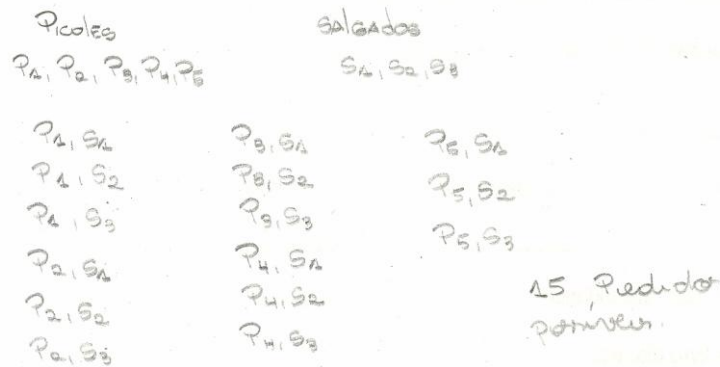 Picoles
Salgados
P1, P2, P3, P4, P5
S1, S2, S3
P1, S1
P1, S2
P1, S3
P2, S1
P2, S2
P2, S3
P3, S1
P3, S2
P3, S3
P4, S1
P4, S2
P4, S3
P5, S1
P5, S2
P5, S3
15 Pedidos
possíveis.